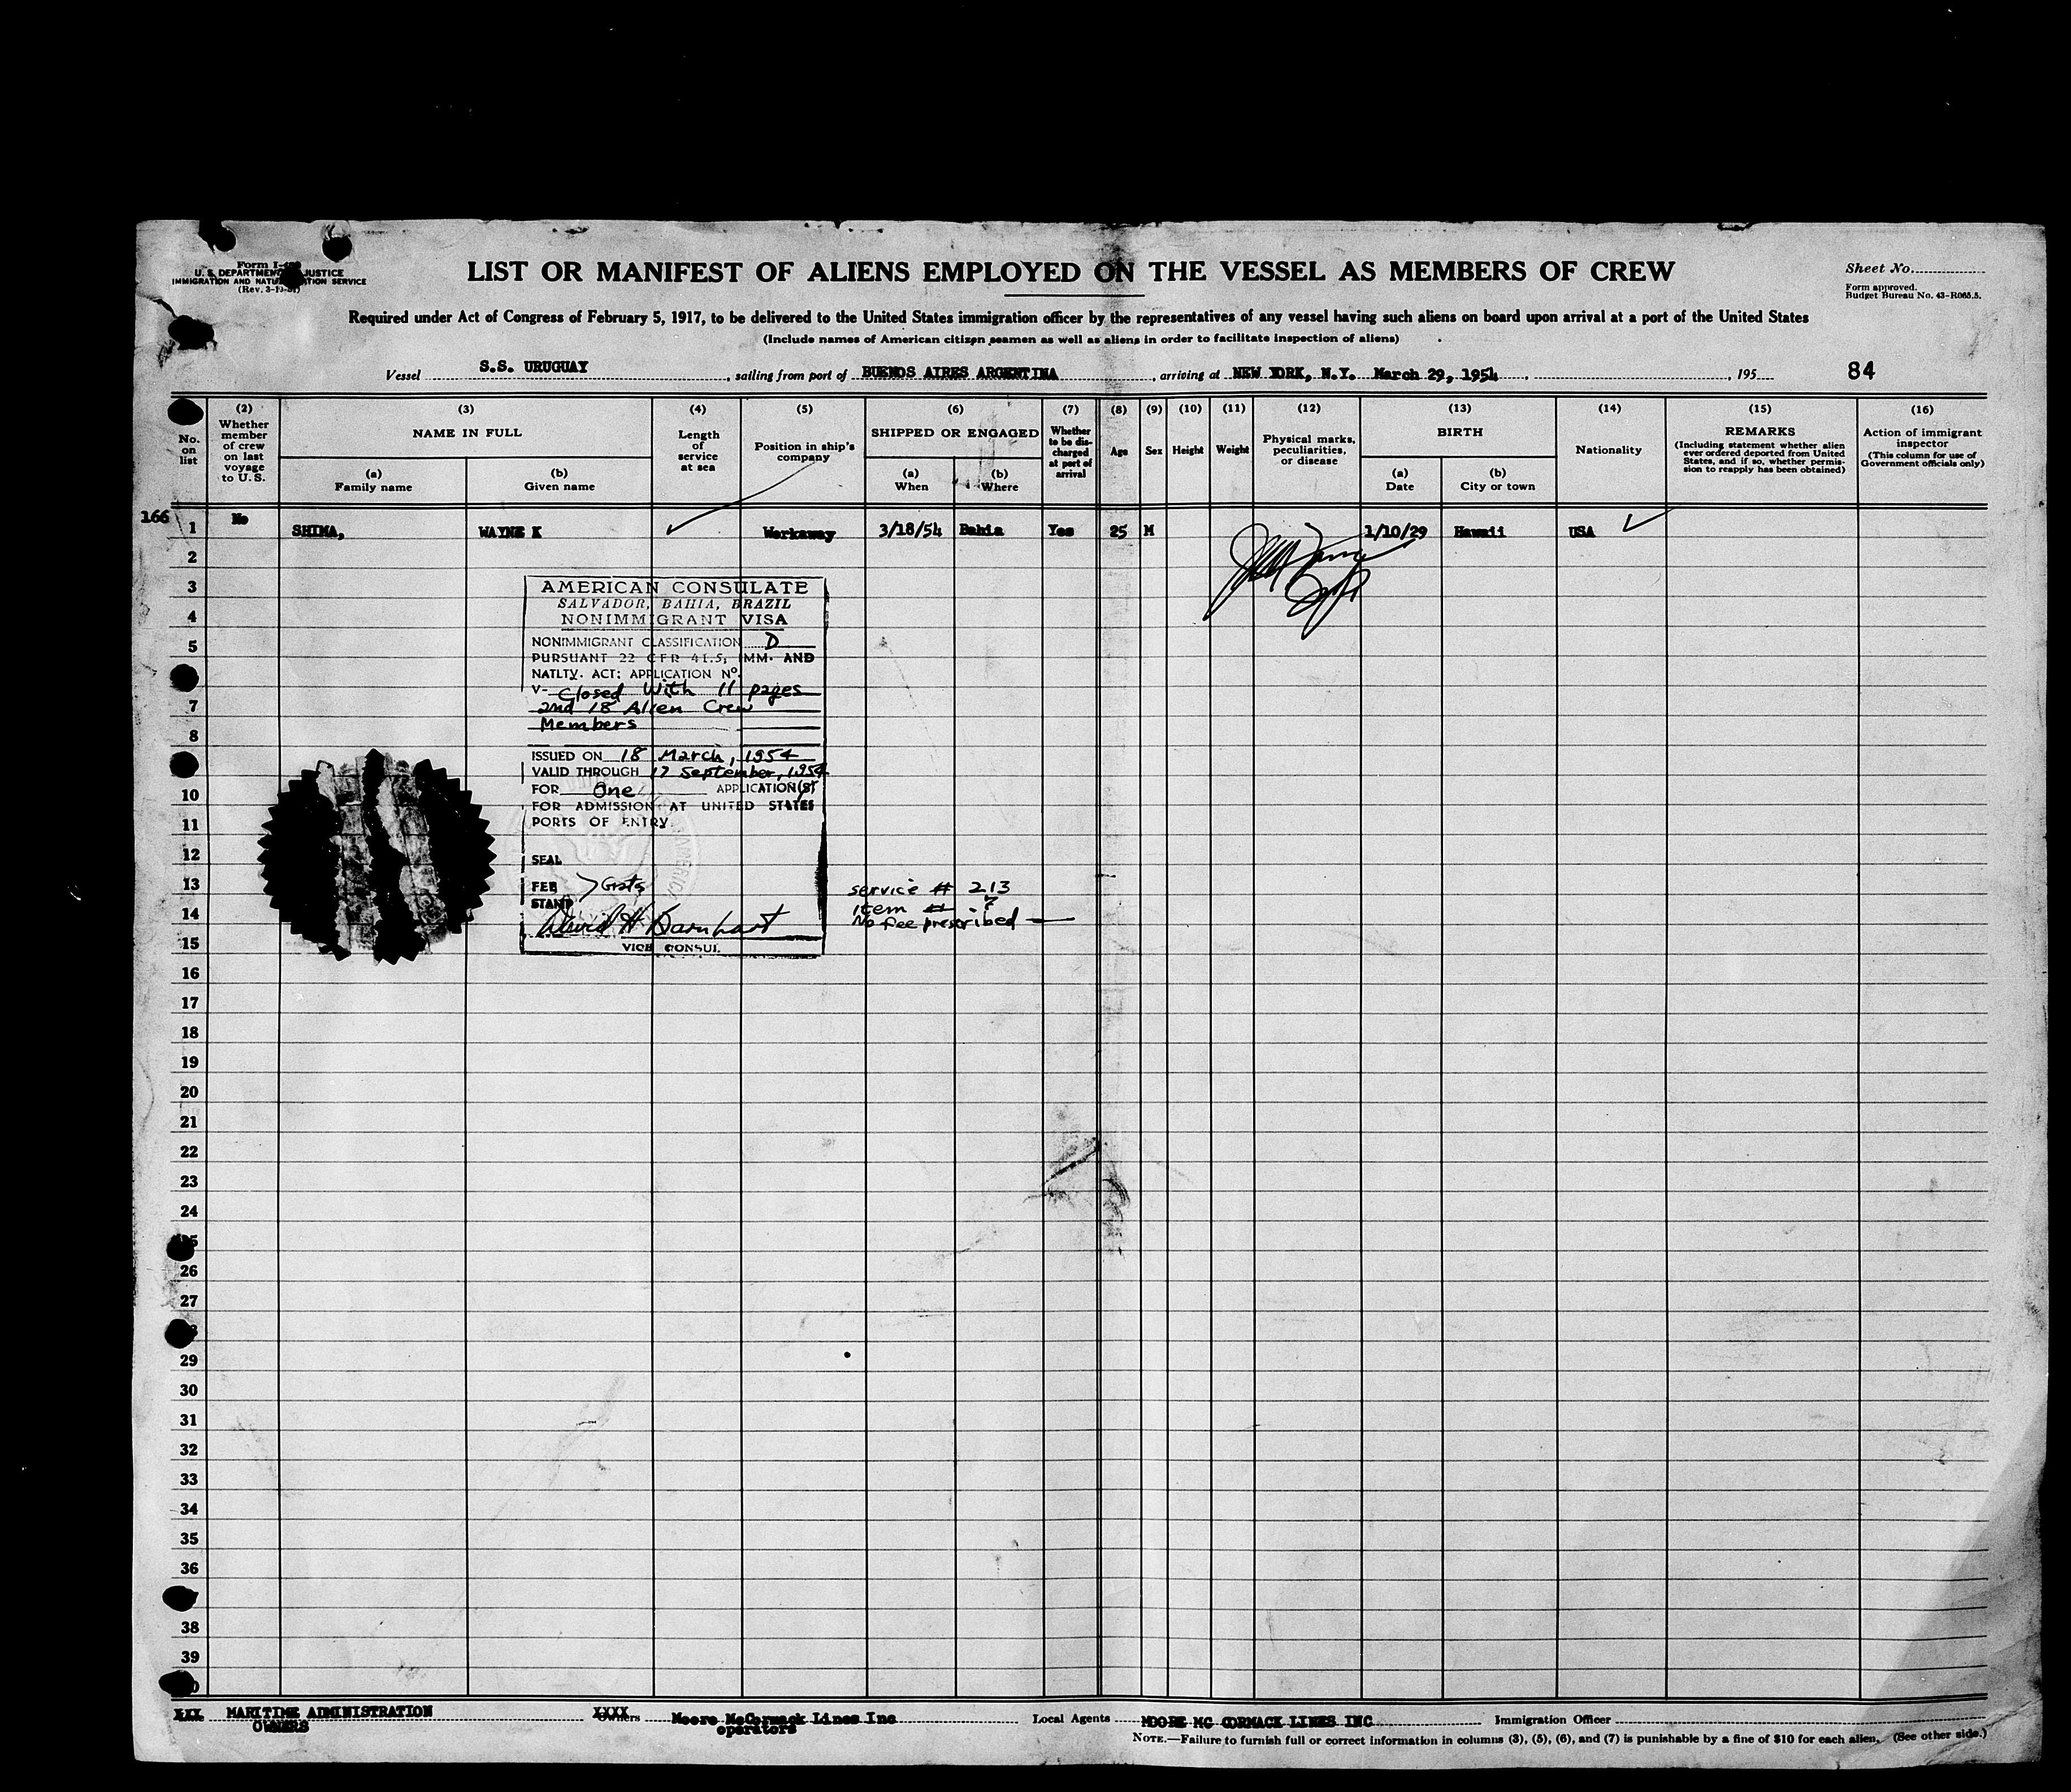 U. S. DEPARTMENT JUSTICE
IMMIGRATION AND NATURALIZATION SERVICE
LIST OR MANIFEST OF ALIENS EMPLOYED ON THE VESSEL AS MEMBERS OF CREW
Sheet No.
Form approved.
Budget Bureau No. 43-R065.5.
Required under Act of Congress of February 5, 1917, to be delivered to the United States immigration officer by the representatives of any vessel having such aliens on board upon arrival at a port of the United States
(Include names of American citizen seamen as well as aliens in order to facilitate inspection of aliens)
Vessel S.S. URUGUAY, sailing from port of BUENOS AIRES ARGENTINA, arriving at NEW YORK, N.Y. March 29, 1954, 195
84
No. on list
(2) Whether member of crew on last voyage to U. S.
(3) NAME IN FULL
(a) Family name
(b) Given name
(4) Length of service at sea
(5) Position in ship's company
(6) SHIPPED OR ENGAGED
(a) When
(b) Where
(7) Whether to be discharged at port of arrival
(8) Age
(9) Sex
(10) Height
(11) Weight
(12) Physical marks, peculiarities, or disease
(13) BIRTH
(a) Date
(b) City or town
(14) Nationality
(15) REMARKS
(Including statement whether alien ever ordered deported from United States, and if so, whether permission to reapply has been obtained)
(16) Action of immigrant inspector
(This column for use of Government officials only)
166 1 No SHIMA, WAYNE K Workaway 3/18/54 Bahia Yes 25 M 1/10/29 Hawaii USA
2
3
4
5
7
8
10
11
12
13
14
15
16
17
18
19
20
21
22
23
24
26
27
29
30
31
32
33
34
35
36
38
39
AMERICAN CONSULATE
SALVADOR, BAHIA, BRAZIL
NONIMMIGRANT VISA
NONIMMIGRANT CLASSIFICATION D
PURSUANT 22 CFR 41.5; IMM. AND
NATLTY. ACT; APPLICATION No.
V- Closed With 11 pages
and 18 Alien Crew
Members
ISSUED ON 18 March, 1954
VALID THROUGH 17 September, 1954
FOR One APPLICATION(S)
FOR ADMISSION AT UNITED STATES
PORTS OF ENTRY.
SEAL
FEE
STAMP
Gratis
David H Barnhart
VICE CONSUL
service # 213
item # 7
No fee prescribed
MARITIME ADMINISTRATION
OWNERS
XXXX
Owners Moore McCormack Lines Inc
operators
Local Agents MOORE MC CORMACK LINES INC
Immigration Officer
NOTE.—Failure to furnish full or correct information in columns (3), (5), (6), and (7) is punishable by a fine of $10 for each alien. (See other side.)